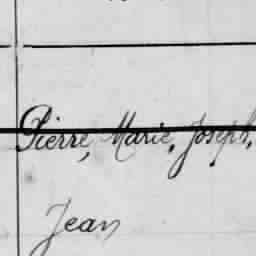 Pierre, Marie, Joseph,
Jean